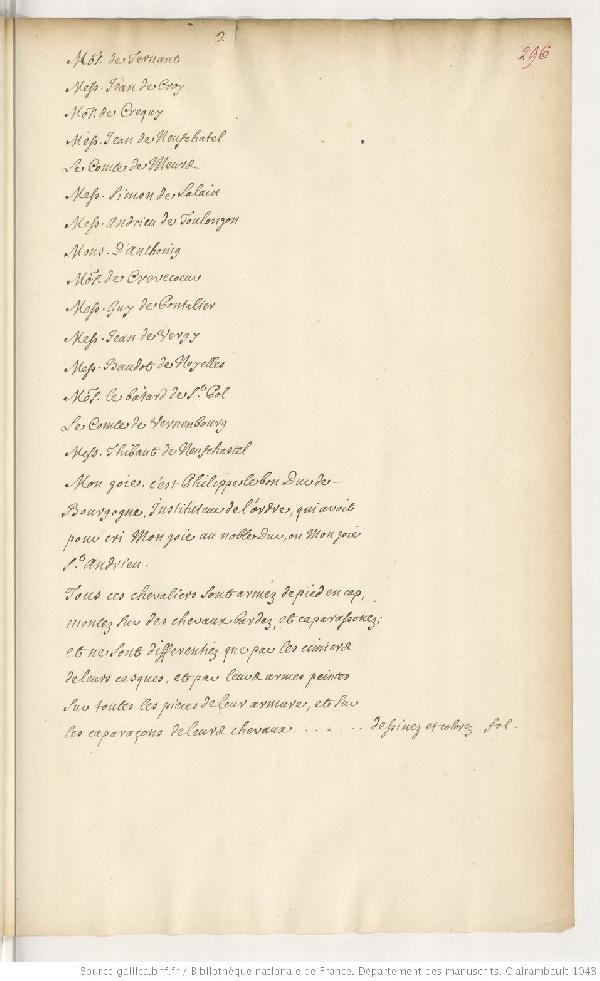 2
296
Mōs. de Ternant
Mess. Jean de Croy
Mōs. de Crequy
Mess. Jean de Neufchatel
Le Comte de Meurs
Mess. Simon de Lalain
Mess. Andrieu de Toulongon
Mons. D'Anthoing
Mōs. de Crevecoeur
Mess. Guy de Pontalier
Mess. Jean de Vergy
Mess. Baudot de Noyelles
Mōs. le bâtard de St. Pol
Le Comte de Vernenbourg
Mess. Thibaut de Neufchastel
Mon goie. c'est Philippe le bon Duc de
Bourgogne, Instituteur de l'ordre, qui avoit
pour cri Mon joie au noble Duc, ou Mon joie
St. Andrieu.
Tous ces chevaliers sont armez de pied en cap,
montez sur des chevaux bardez, et caparassonez;
et ne sont differentiez que par les cimiers
de leurs casques, et par leurs armes peintes
sur toutes les pieces de leur armures, et sur
les caparaçons de leurs chevaux . . . . . . dessinez et colorez fol.
Source gallica.bnf.fr / Bibliothèque nationale de France. Département des manuscrits. Clairambault 1043